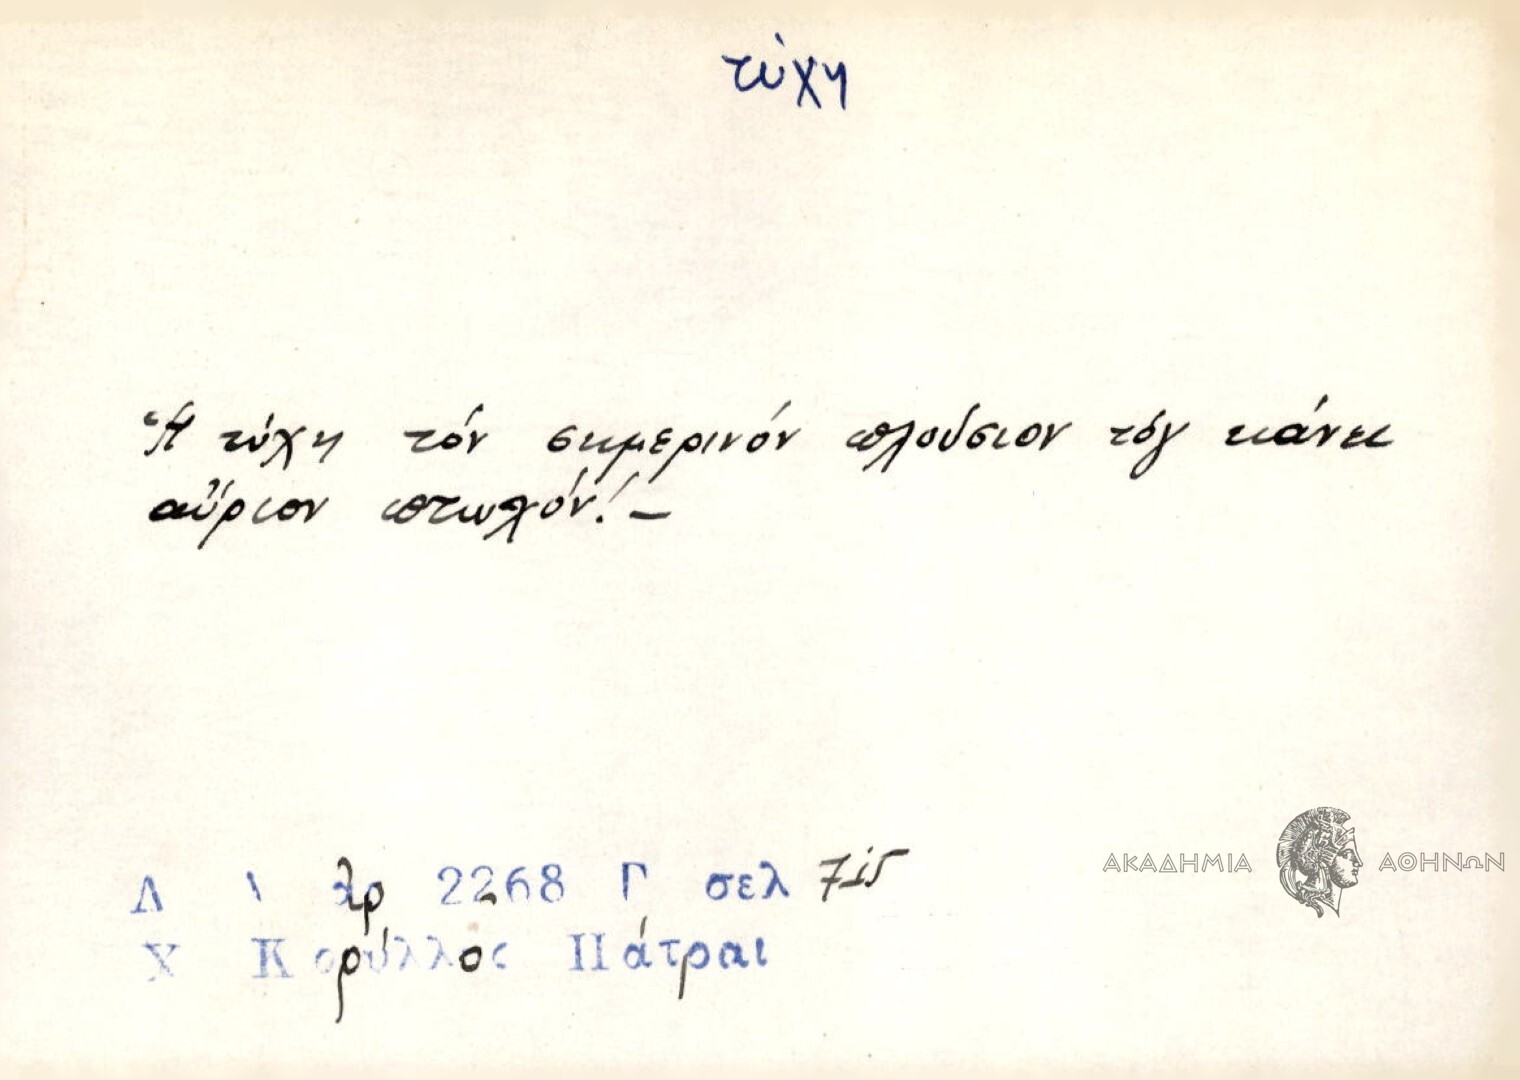 τύχη
Ἡ τύχη τόν σημερινόν πλούσιον τόν κάνει
αὔριον πτωχόν!—
Λ Α ἀρ 2268 Γ σελ 715
Χ Κορύλλος Πάτραι
ΑΚΑΔΗΜΙΑ ΑΘΗΝΩΝ